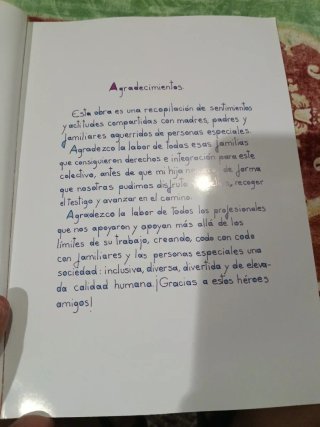 Agradecimientos.
Esta obra es una recopilación de sentimientos
y actitudes compartidas con madres, padres y
familiares aguerridos de personas especiales.
Agradezco la labor de todas esas familias
que consiguieron derechos e integración para este
colectivo, antes de que mi hija de forma
que nosotras pudimos recoger
el testigo y avanzar en el camino.
Agradezco la labor de todos los profesionales
que nos apoyaron y apoyan más allá de los
límites de su trabajo, creando, codo con codo
con familiares y las personas especiales una
sociedad: inclusiva, diversa, divertida y de eleva-
da calidad humana. ¡Gracias a estos héroes
amigos!